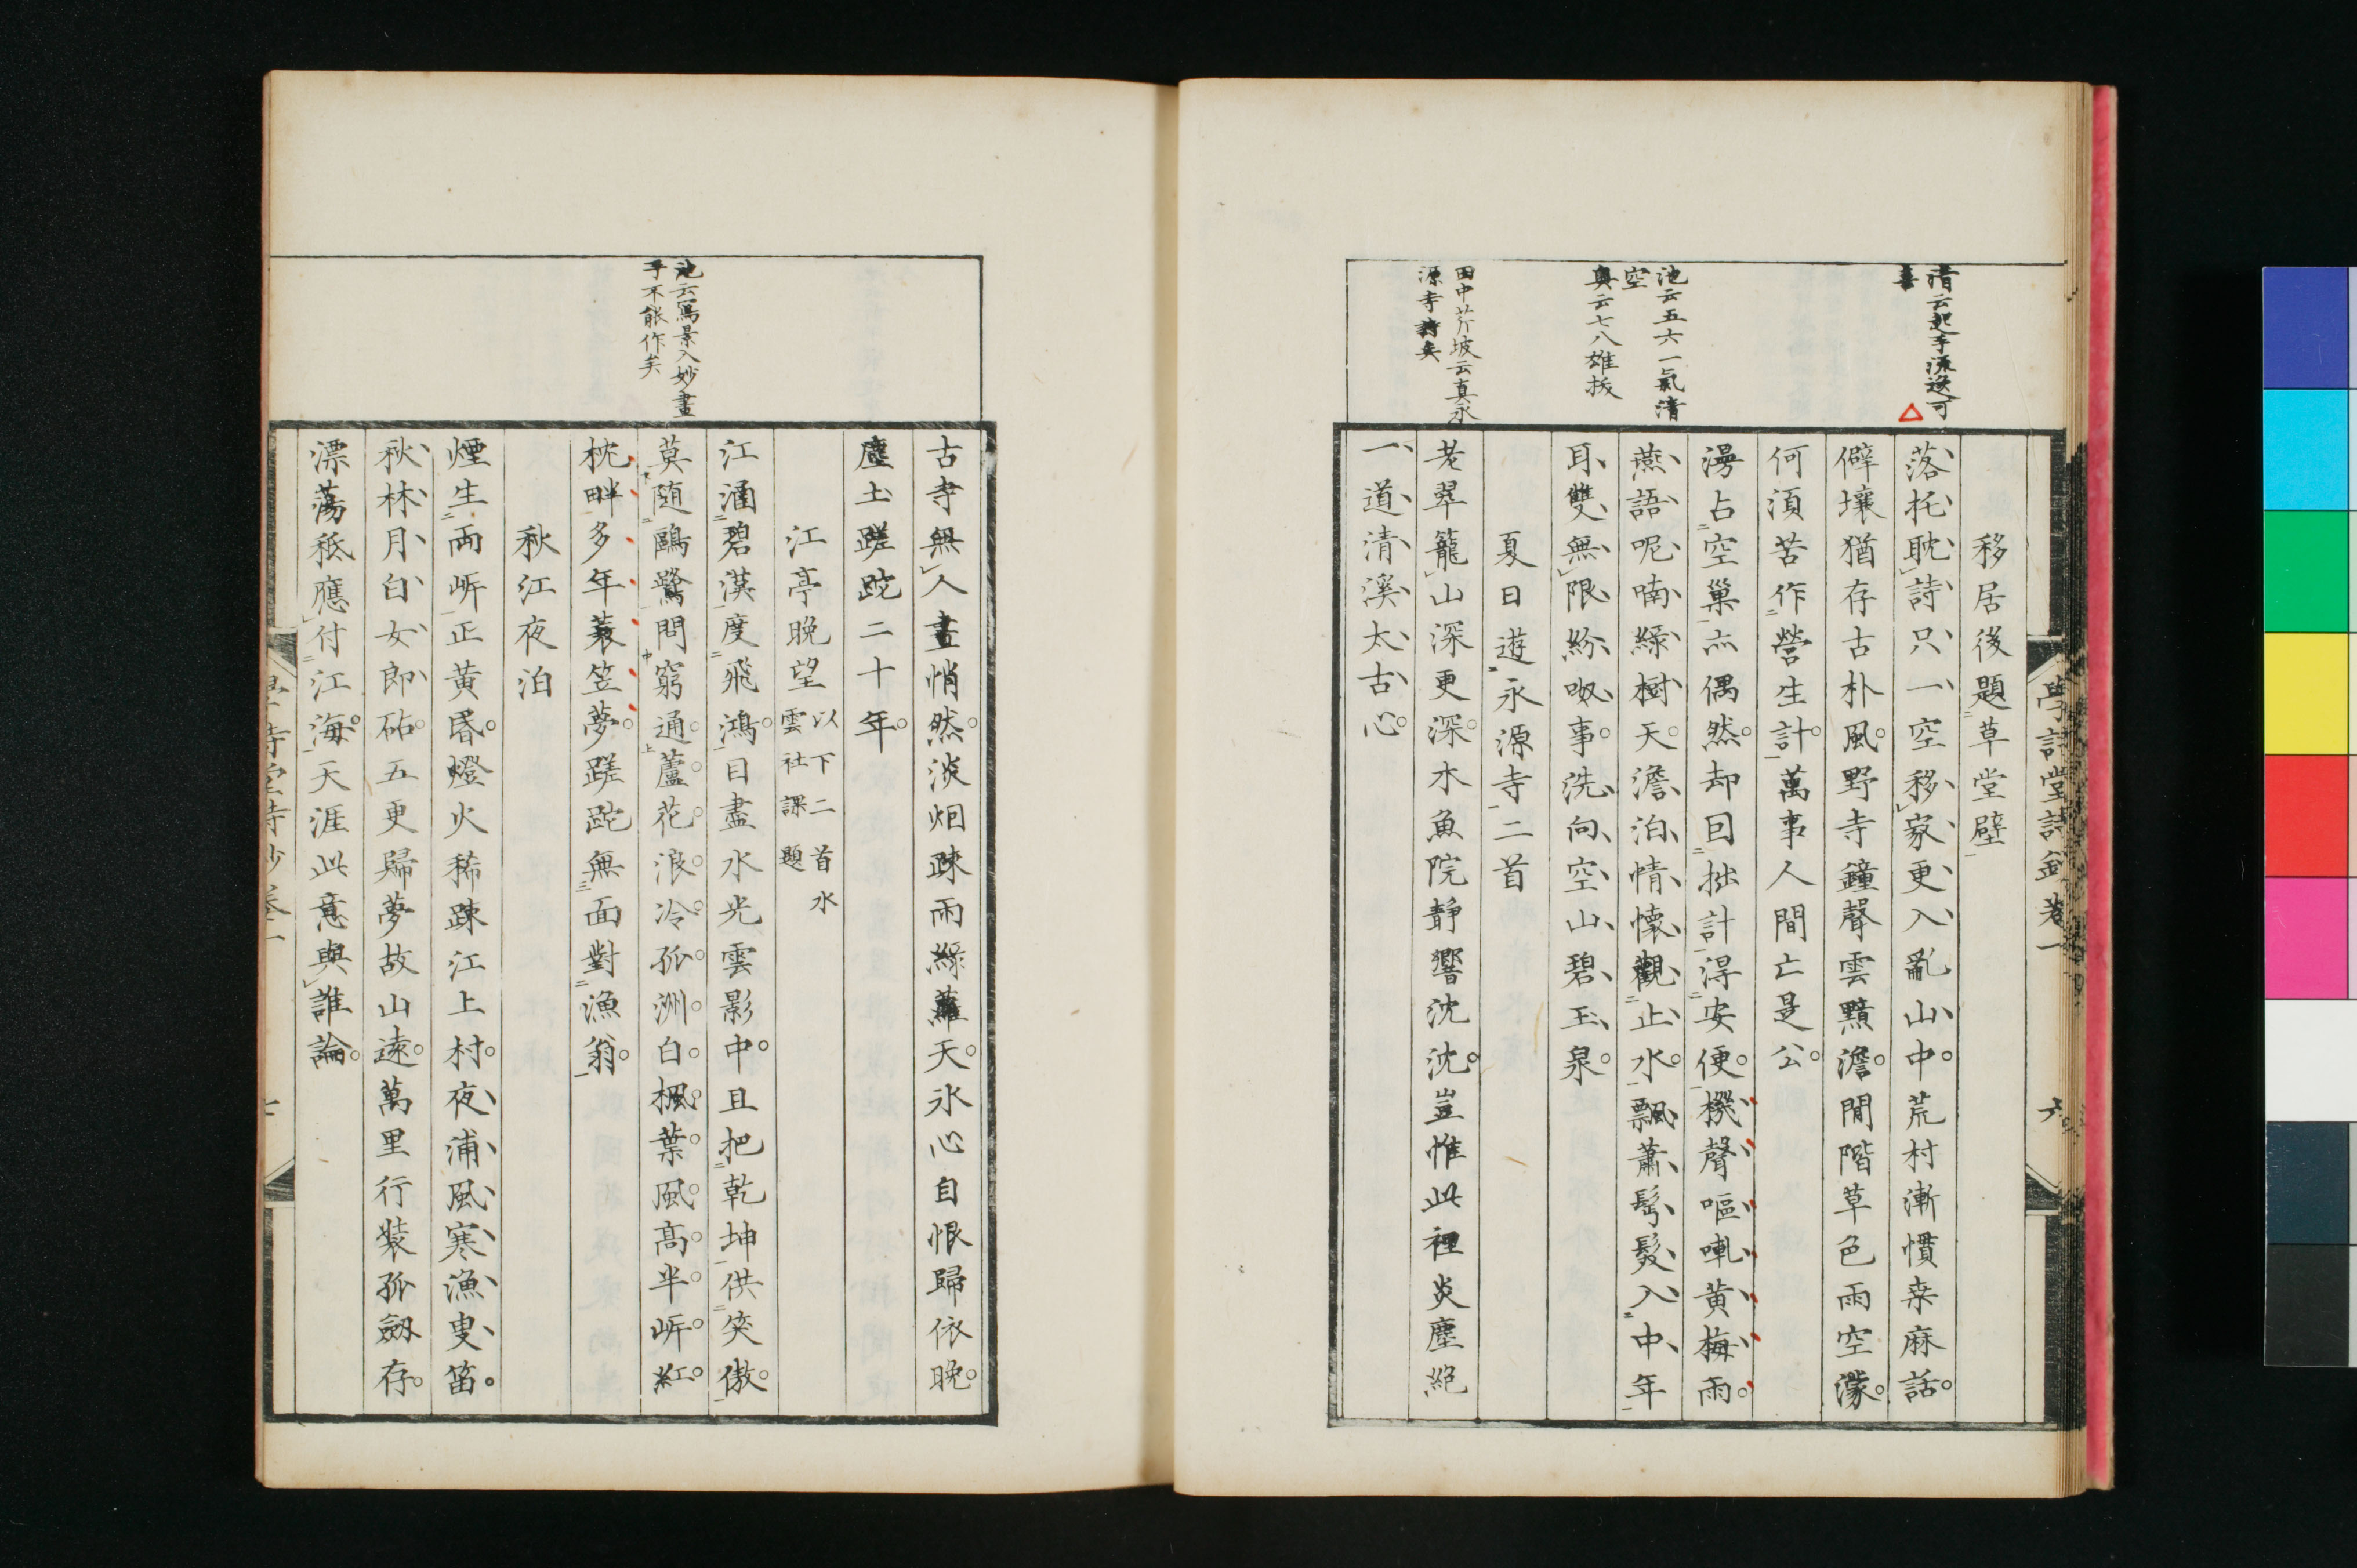 學詩堂詩鈔卷一
六
清云起手洒逸可
喜
池云五六一氣清
空
奥云七八雄拔
田中芹坡云真永
源寺詩矣
移居後題草堂壁
落托耽詩只一空移家更入亂山中荒村漸慣桒麻話
僻壤猶存古朴風野寺鐘聲雲黯澹閒階草色雨空濛
何須苦作營生計萬事人間亡是公
漫占空巢亦偶然却因拙計得安便機聲嘔啴黄梅雨
燕語呢喃綠樹天澹泊情懷觀止水飄蕭髩髮入中年
耳雙無限紛呶事洗向空山碧玉泉
夏日遊永源寺二首
老翠籠山深更深木魚院靜響沈沈豈惟此裡炎塵絕
一道清溪太古心
池云寫景入妙畫
手不能作矣
古寺無人晝悄然淡烟疎雨綠蘿天氷心自恨歸依晚
塵土蹉跎二十年
江亭晚望 以下二首水雲社課題
江涵碧漢度飛鴻目盡水光雲影中且把乾坤供笑傲
莫随鷗鷺問窮通蘆花浪冷孤洲白楓葉風髙半岍紅
枕畔多年蓑笠夢蹉跎無面對漁翁
秋江夜泊
煙生兩岍正黄昏燈火稀踈江上村夜浦風寒漁叟笛
秋林月白女郎砧五更歸夢故山遠萬里行装孤劔存
漂蕩秪應付江海天涯此意與誰論
學詩堂詩鈔卷一
七